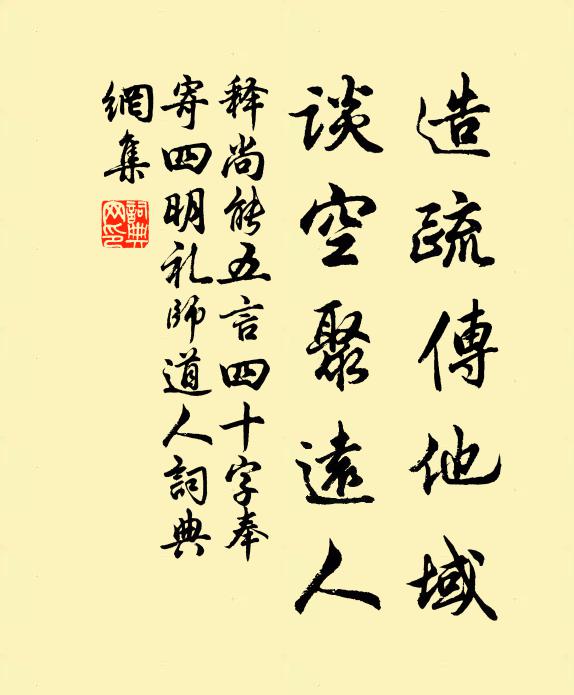 造疏傳他域
談空聚遠人
释尚能五言四十字奉
寄四明礼師道人詞典
網集
詞典
网印